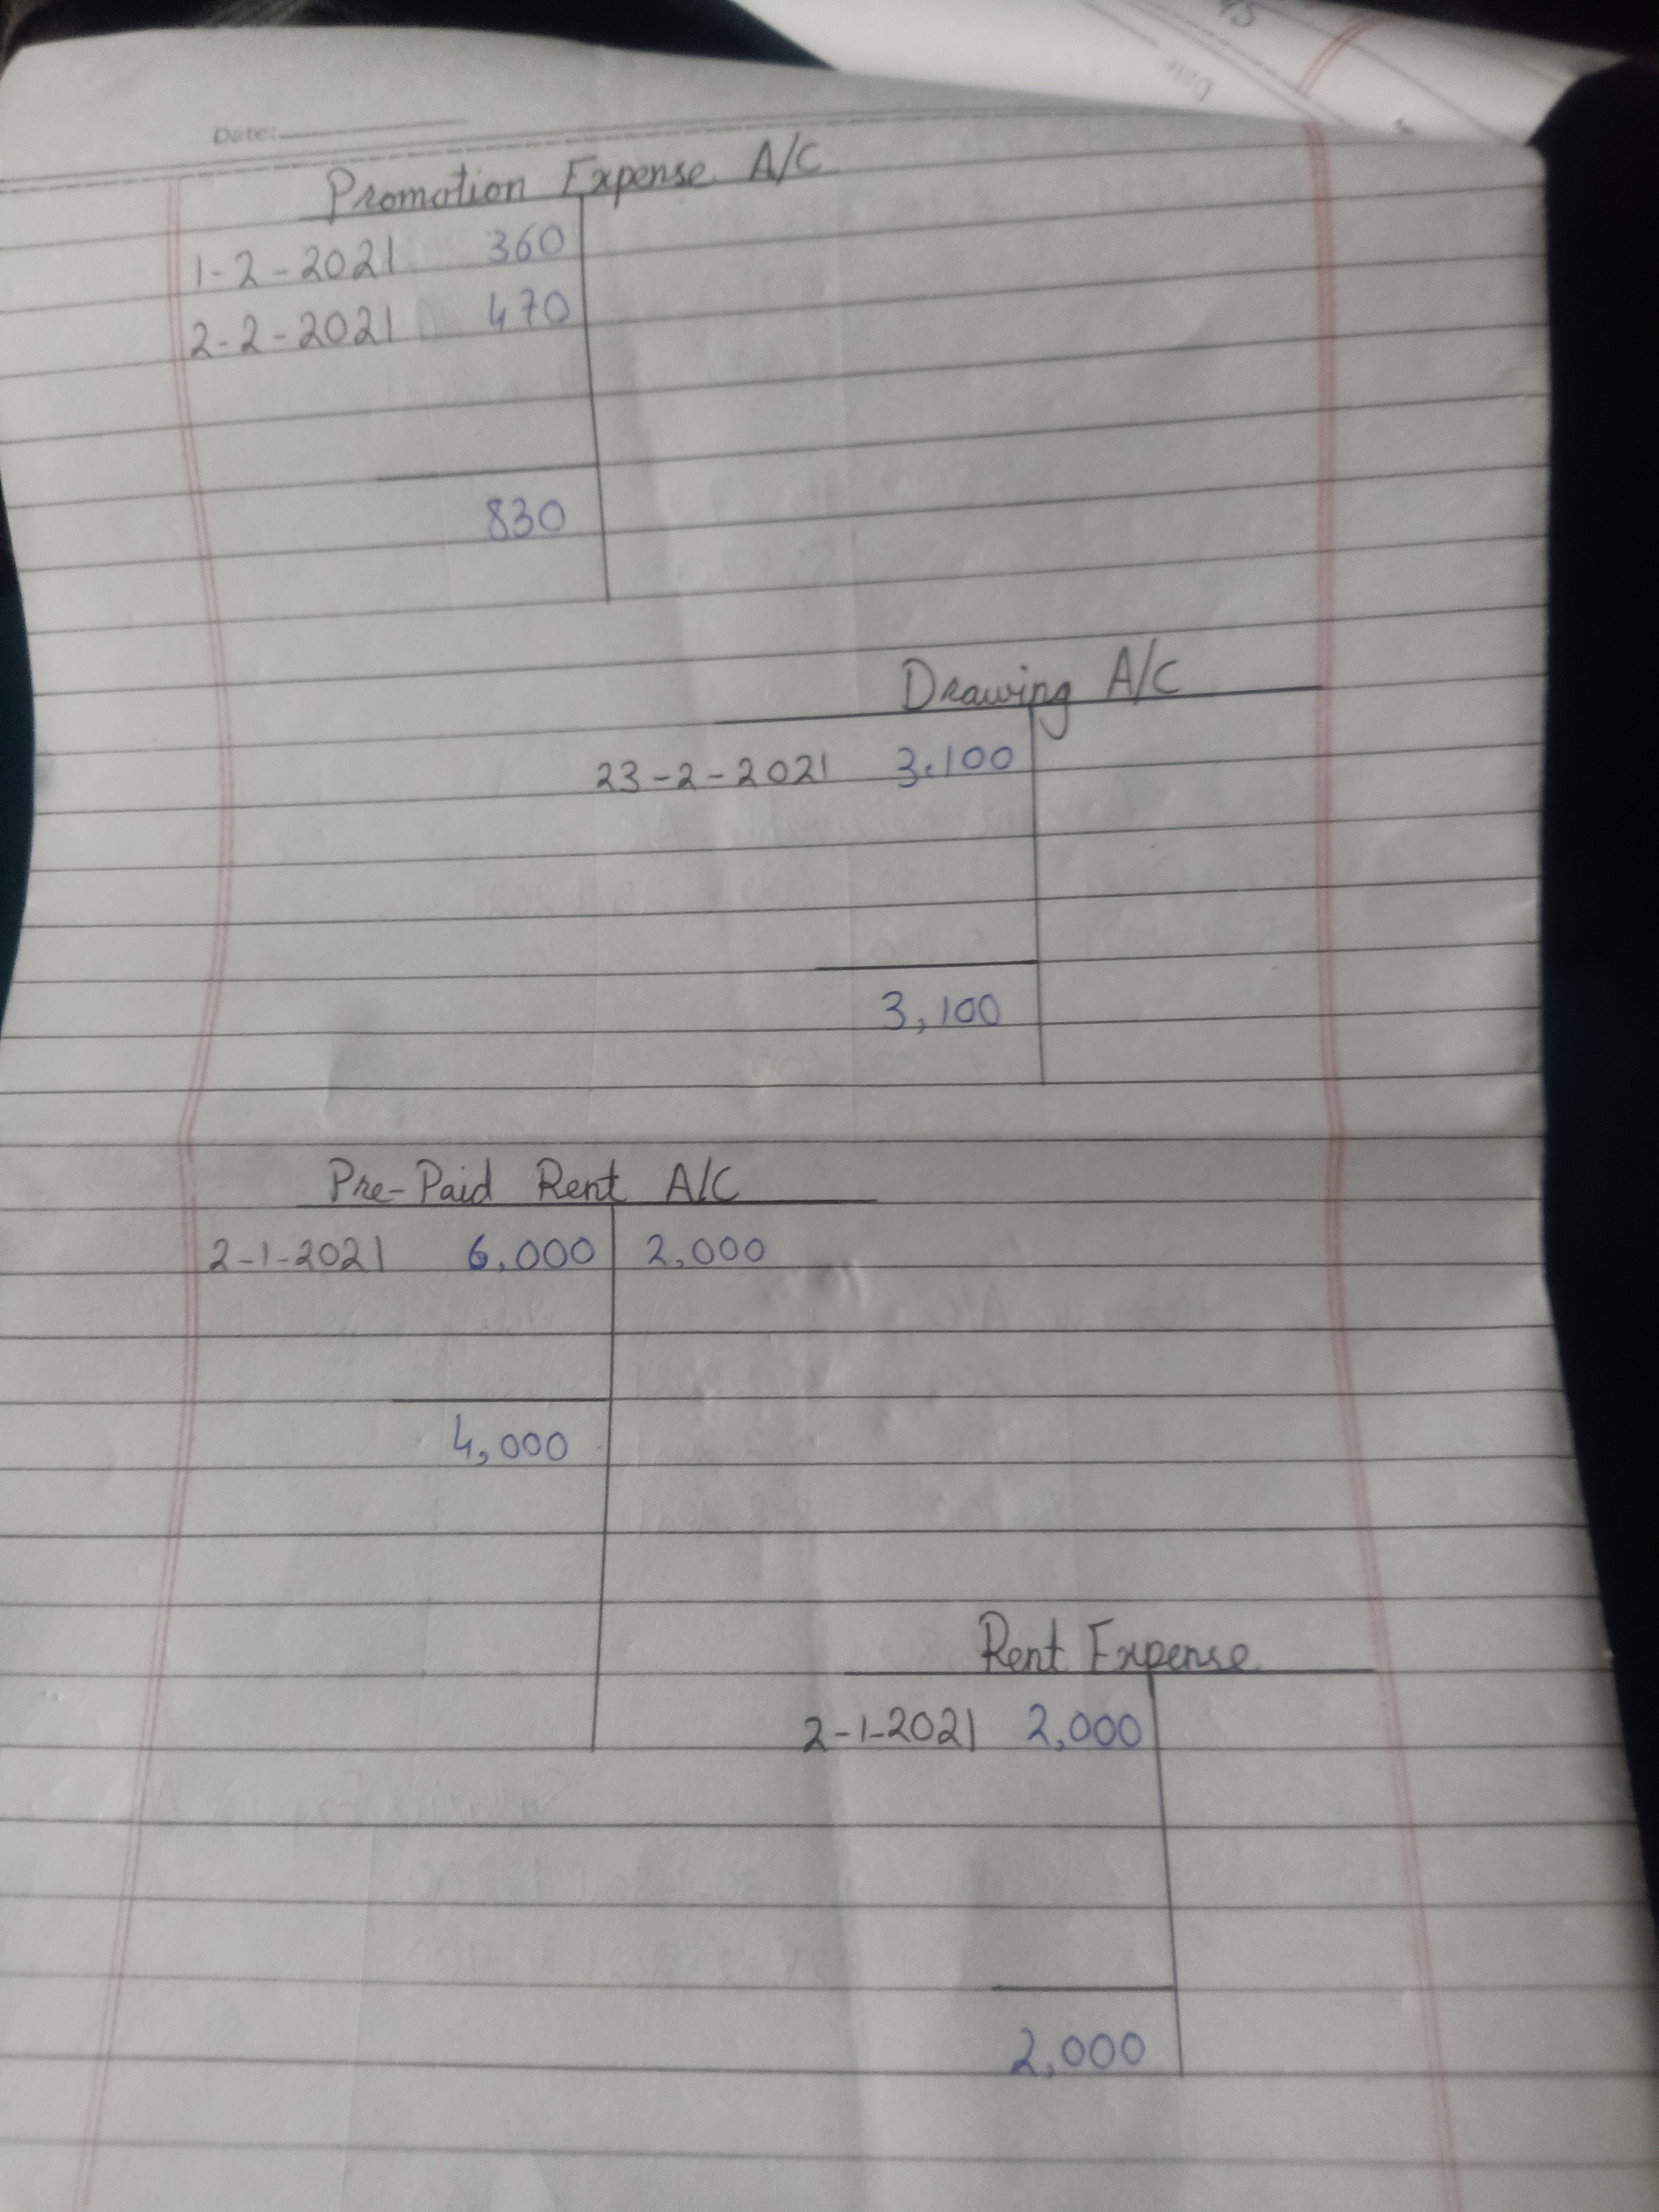 Date:
Date
Promotion Expense A/C
1-2-2021 360
2-2-2021 470
830
Drawing A/C
23-2-2021 3,100
3,100
Pre-Paid Rent A/C
2-1-2021 6,000 2,000
4,000
Rent Expense
2-1-2021 2,000
2,000